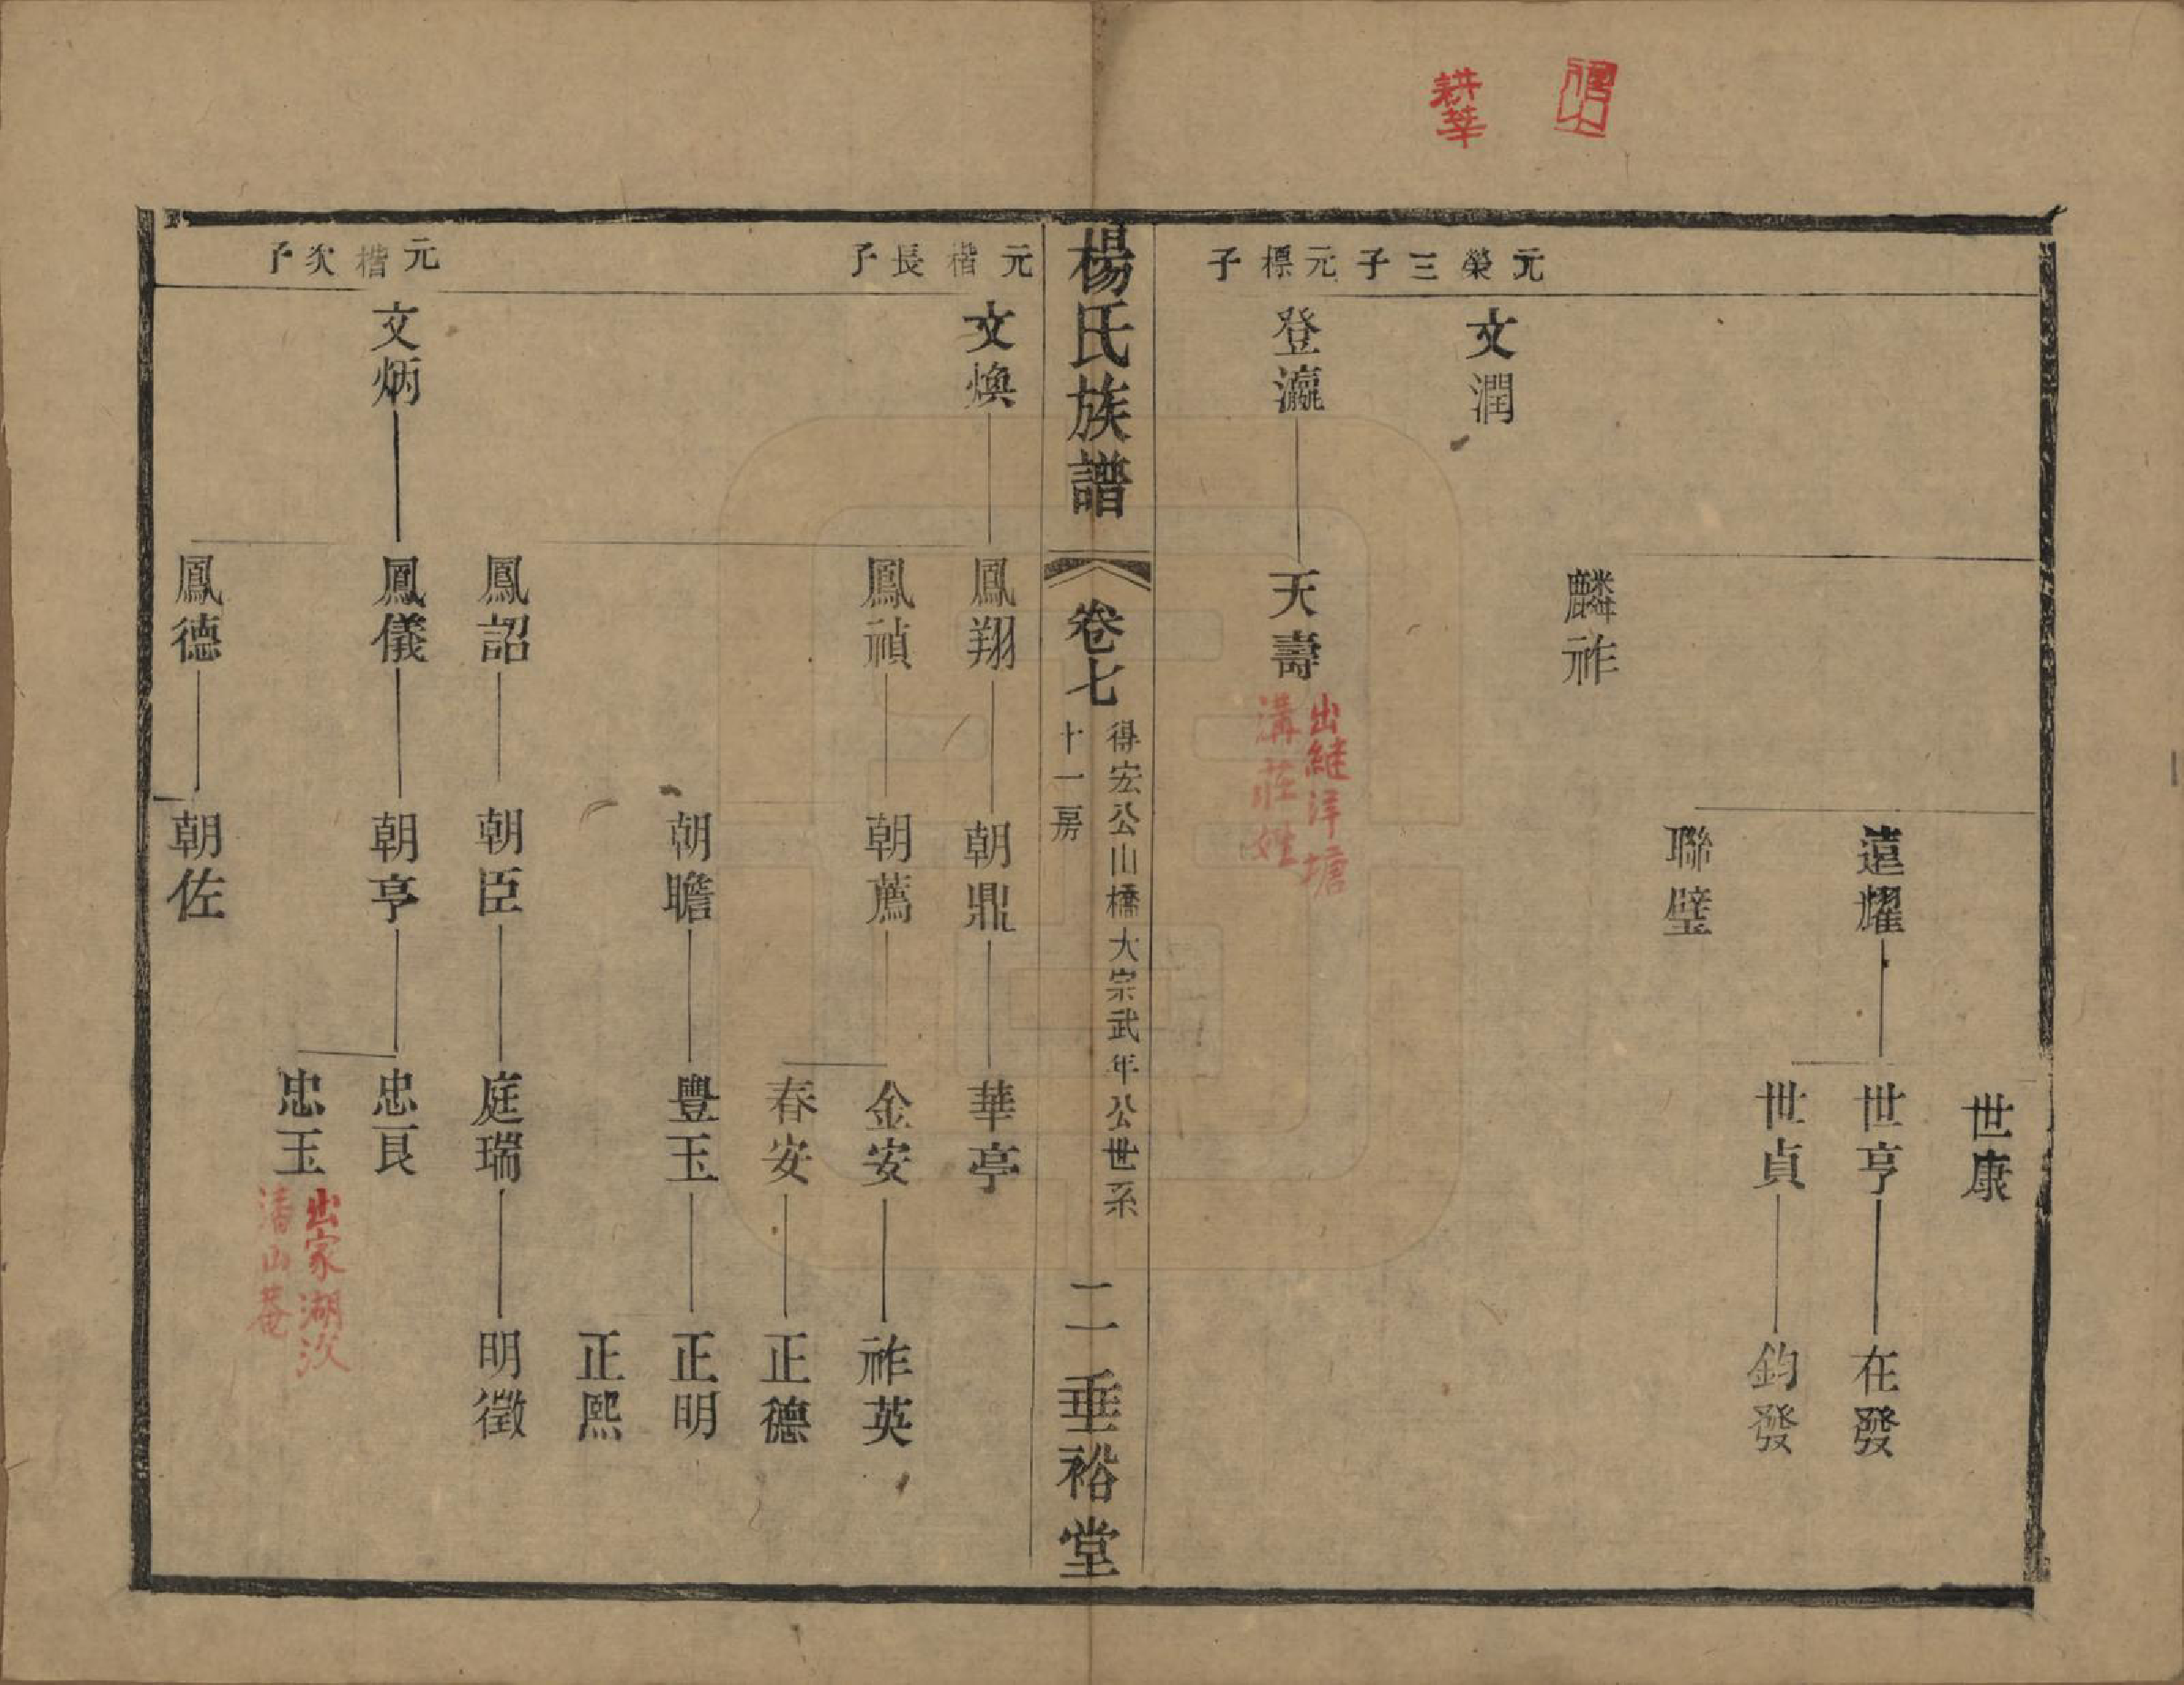 耕莘
元榮三子
元標子
世康
遠耀
世亨
在發
世貞
鈞發
聯璧
麟祚
文潤
登瀛
天壽
出繼洋塘
溝莊姓
楊氏族譜
卷七
得宏公山橋大宗武年公世系
十一房
二
垂裕堂
元楷長子
元楷次子
文煥
鳳翔
朝鼎
華亭
鳳禎
朝薦
金安
祚英
春安
正德
朝瞻
豐玉
正明
正熙
鳳詔
朝臣
庭瑞
明徵
文炳
鳳儀
朝亨
忠良
忠玉
出家湖汊
潘山菴
鳳德
朝佐